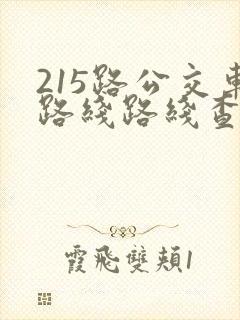 215路公交車
路綫路綫查
霞飛雙頰1